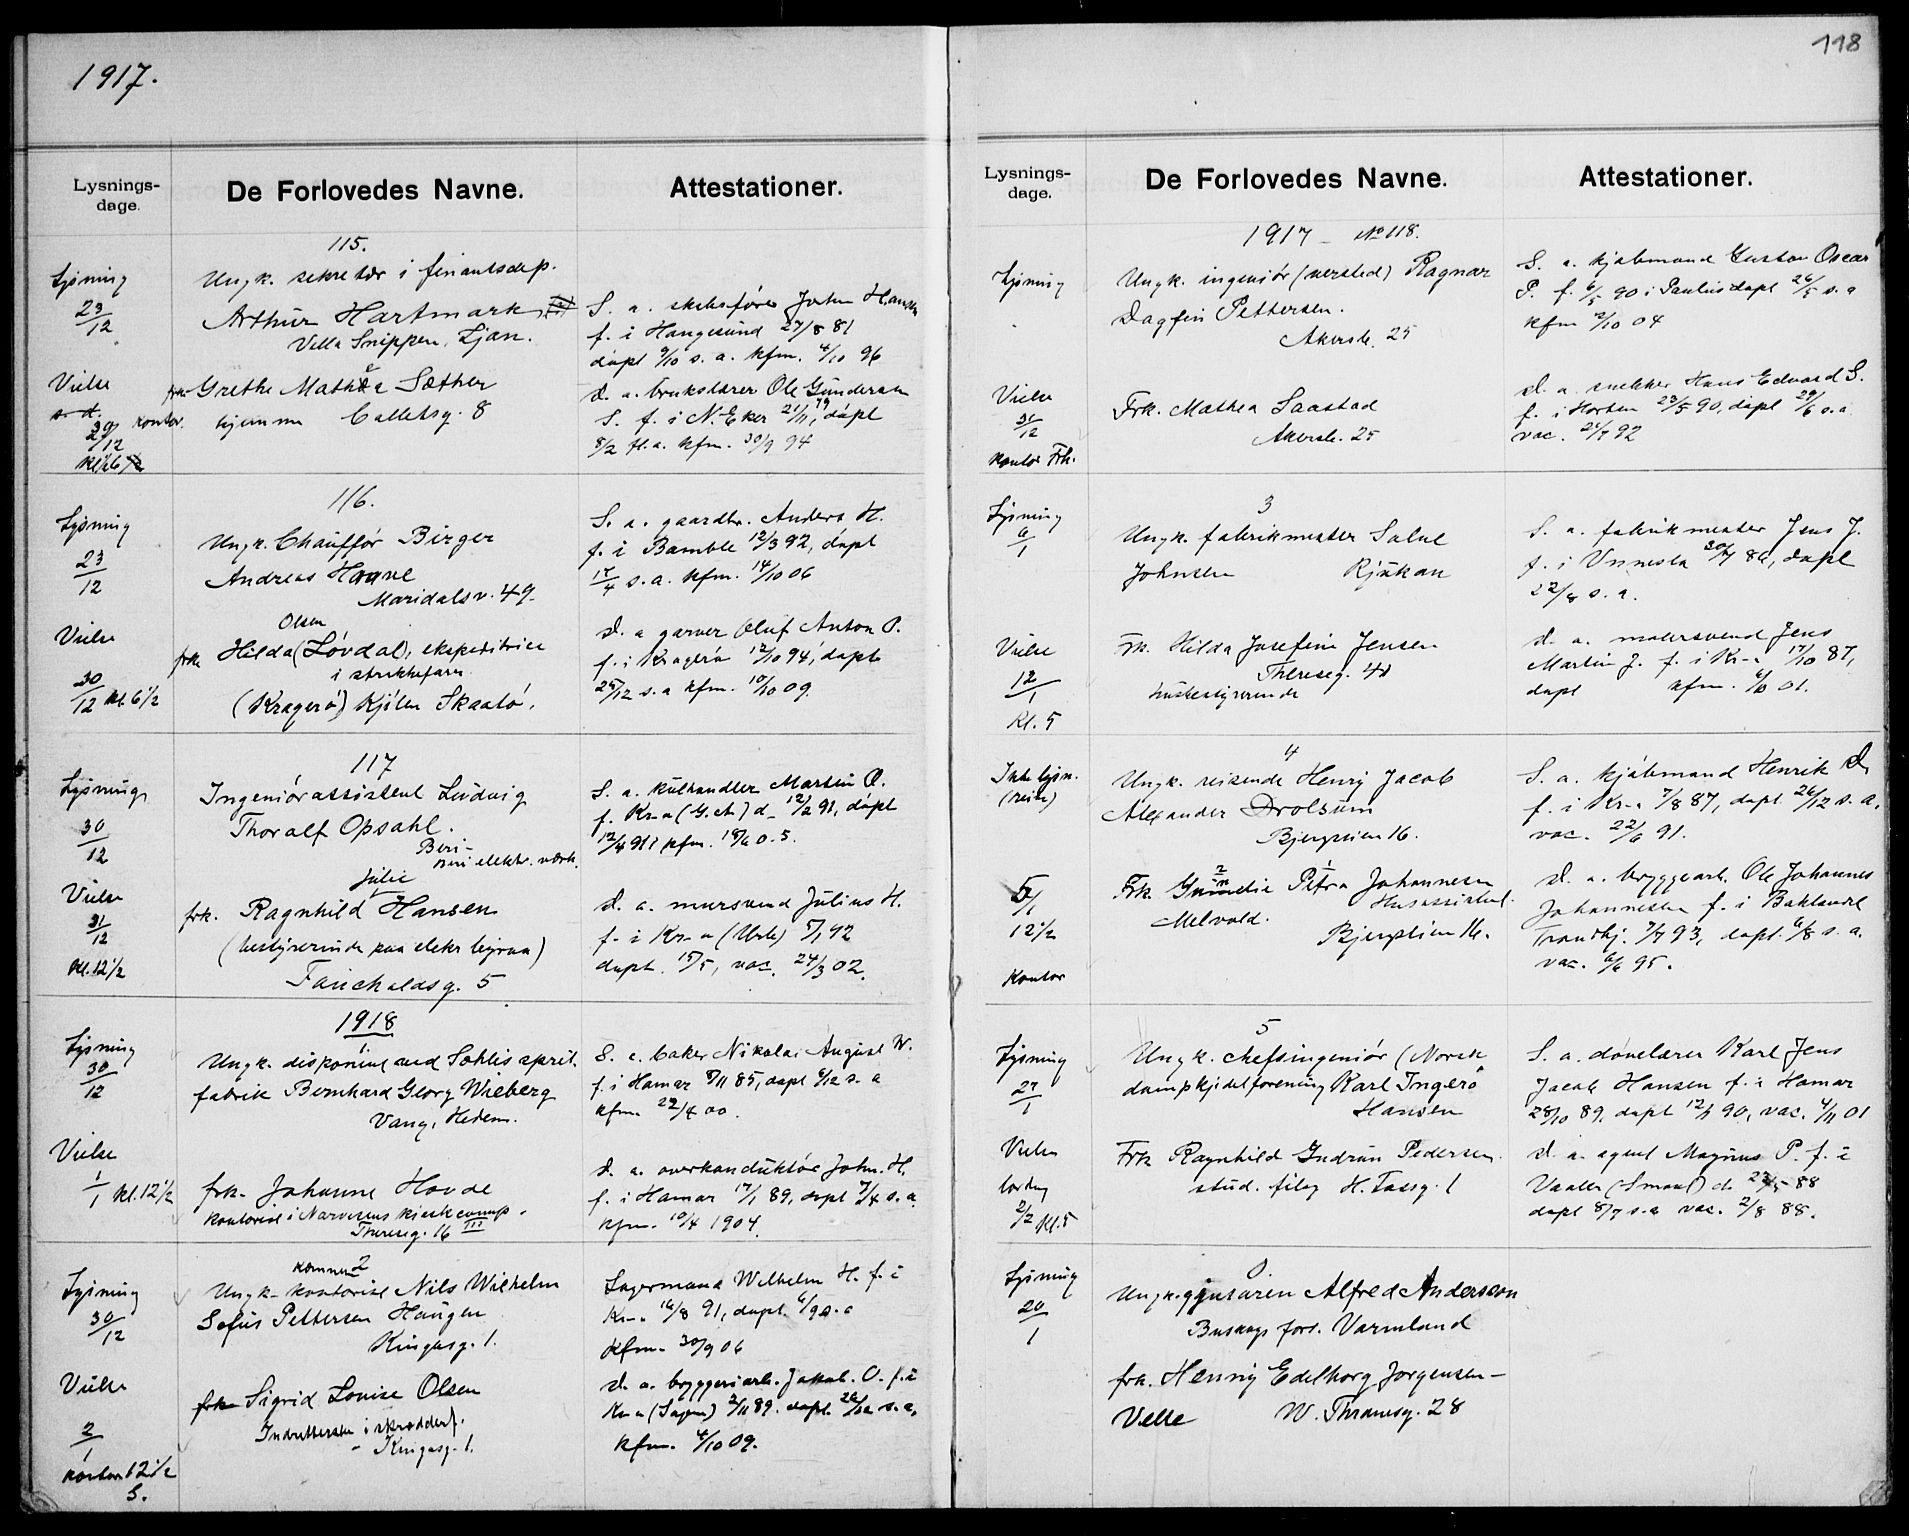 1917.
Lysnings-
dage.
De Forlovedes Navne.
Attestationer.
115.
Lysning
23/12
Ungk. sekretær i finantsdep.
Arthur Hartmark
Villa Snippen, Ljan.
S. a. skibsfører Hansen
f. i Haugesund 27/8 81
døpt 9/10 s. a. kfm. 4/10 96
Vielse
29/12
kontor.
frk. Grethe Mathea Sæther
hjemme Calletsg. 8
D. a. brukslærer Ole Gunderson
S. f. i N. Eker 21/11 79, døpt
8/2 kfm. 30/9 94
116.
Lysning
23/12
Ungk. Chauffør Birger
Andreas Haave
Maridalsv. 49
S. a. gaardbr. Anders H.
f. i Bamble 12/3 92, døpt
17/4 s. a. kfm. 14/10 06
Vielse
30/12 kl. 6 1/2
Olsen
frk. Hilda (Løvdal), ekspeditrice
i strikkeforr.
(Kragerø) Kjølen Skaatø.
D. a garver Oluf Anton P.
f. i Kragerø 12/10 94, døpt
25/12 s. a kfm. 10/10 09.
117
Lysning
30/12
Ingeniørassistent Ludvig
Thoralf Opsahl.
elektr. verk.
S. a. kulhandler Martin O.
f. Kr-a (G. A) d. 12/2 91, døpt
12/4 91 kfm. 18/6 05.
Vielse
31/12
Kl. 12 1/2
Julie
frk. Ragnhild Hansen
(bestyrerinde paa elektr byraa)
Fauchaldsg. 5
D. a. mursvend Julius H.
f. i Kr-a (Urb) 5/1 92
døpt. 15/5, vac. 24/3 02.
1918
1
Lysning
30/12
Ungk. disponent ved Sohlis sprit
fabrik Bernhard Georg Wieberg
Vang, Hedem.
S. a. baker Nikolai August W.
f. i Hamar 5/11 85, døpt 6/12 s. a
kfm. 22/4 00.
Vielse
1/1 kl. 12 1/2
frk. Johanne Hovde
kontorist i Narvesens kioskkomp.
Theresg. 16 III
D. a. overkonduktør John. H.
f. i Hamar 17/1 89, døpt 7/4 s. a.
kfm. 10/4 1904.
2
Lysning
30/12
Ungk. kontorist Nils Wilhelm
Sofus Pettersen Haugen
Kingosg. 1.
Lagermand Wilhelm H. f. i
Kr-a 16/8 91, døpt. 6/9 s. a
Kfm. 30/9 06
Vielse
2/1
Kontor 12 1/2
S.
frk Sigrid Louise Olsen
i skrædderf.
Kingosg. 1.
D. a. bryggeriarb. Jakob. O. f. i
Kr-a (Sagene) 2/11 89. døpt. 26/12 s. a.
kfm. 4/10 09.
118
Lysnings-
dage.
De Forlovedes Navne.
Attestationer.
1917 - No 118.
Lysning
Ungk. ingeniør (verksted) Ragnar
Dagfin Pettersen.
Akersb. 25
S. a. kjøbmand Gustav Oscar
P. f. 6/5 90 i Paulus døpt 26/5 s. a
kfm 2/10 04
Vielse
31/12
kontor Frk.
Frk. Mathea Saastad
Akersb. 25
D. a snekker Hans Edvard S.
f. i Horten 23/5 90, døpt 29/6 s. a.
vac. 21/7 92
3
Lysning
6/1
Ungk. fabrikmester Salve
Johnsen Rjukan
S. a. fabrikmester Jens J.
f. i Vennesla 30/7 86, døpt
22/8 s. a.
Vielse
12/1
Kl. 5
Frk. Hilda Josefine Jensen
Thereseg. 41
husbestyrerinde
D. a. malersvend Jens
Martin J. f. i Kr-a 17/10 87,
døpt kfm. 6/10 01.
4
Ikke lysn.
(reise)
Ungk. reisende Henry Jacob
Alexander Drolsum
Bjergsien 16.
S. a. kjøbmand Henrik D.
f. i Kr-a 7/8 87, døpt 26/12 s. a,
vac. 22/6 91.
5/1
12 1/2
Kontor
Frk. Petra Johannesen
Husassistent.
Melvold.
Bjergstien 16.
D. a. bryggearb. Ole Johannes
Johannesen f. i Baklandet
Trondhj. 7/7 93, døpt. 6/8 s. a.
vac. 6/6 95.
5
Lysning
27/1
Ungk. chefsingeniør (Norsk
dampkjedelforening) Karl Ingerø
Hansen
S. a. døvelærer Karl Jens
Jacob Hansen f. i Hamar
28/10 89. døpt 12/1 90, vac. 4/11 01
Vielse
lørdag
2/2 Kl. 5
Frk Ragnhild Gudrun Pedersen.
stud. filog H. Tassg. 1
D. a. agent Magnus P. f. i
Vaaler (Smaal) d. 22/5 88
døpt 8/7 s. a vac. 2/8 88.
Lysning
20/1
Ungk. Alfred Andersson
Buskogs fors. Varmland
frk. Henny Edelborg Jørgensen-
Velle W. Thranesg. 28